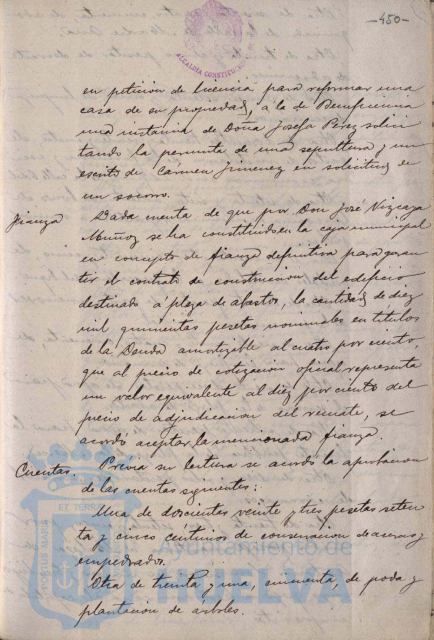 -450-
ALCALDIA CONSTITUC
en peticion de licencia para reformar una
casa de su propiedad, a la de Beneficencia
una instancia de Doña Josefa Perez solici
tando la permuta de una sepultura y un
escrito de Carmen Jimenez en solicitud de
un socorro.
Fianza Dada cuenta de que por Don José Vizcaya
Muñoz se ha constituido en la caja municipal
en concepto de fianza definitiva para garan
tir el contrato de construccion del edificio
destinado a plaza de abastos, la cantidad de diez
mil quinientas pesetas nominales en titulos
de la Deuda amortizable al cuatro por ciento,
que al precio de cotizacion oficial representa
un valor equivalente al diez por ciento del
precio de adjudicacion del remate, se
acordó aceptar la mencionada fianza.
Cuentas. Previa su lectura se acordó la aprobacion
de las cuentas siguientes:
Una de doscientas veinte y tres pesetas seten
ta y cinco centimos de conservacion de aceras y
empedrados.
Otra de treinta y una, cincuenta, de poda y
plantacion de arboles.
ET TERRA
PORTUS MARIS
Ayuntamiento de
HUELVA